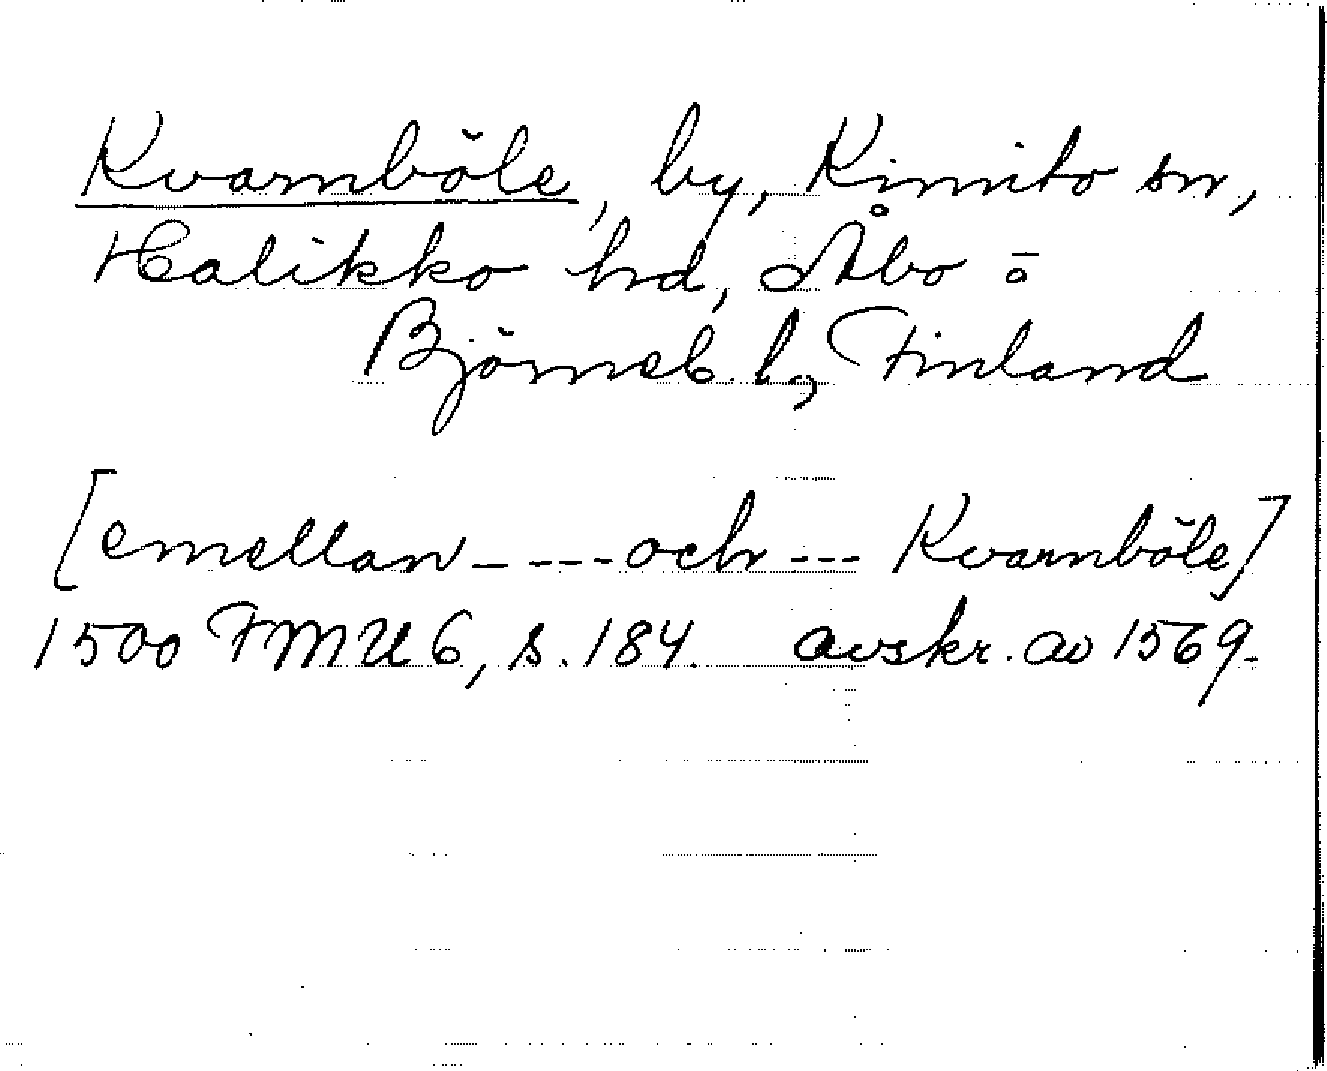 Kvarnböle, by, Kimito sn,
Halikko hd, Åbo o
Björneb. l., Finland
[emellan - --- och --- Kvarnböle]
1500 FMU 6, s. 184. avskr. av 1569.